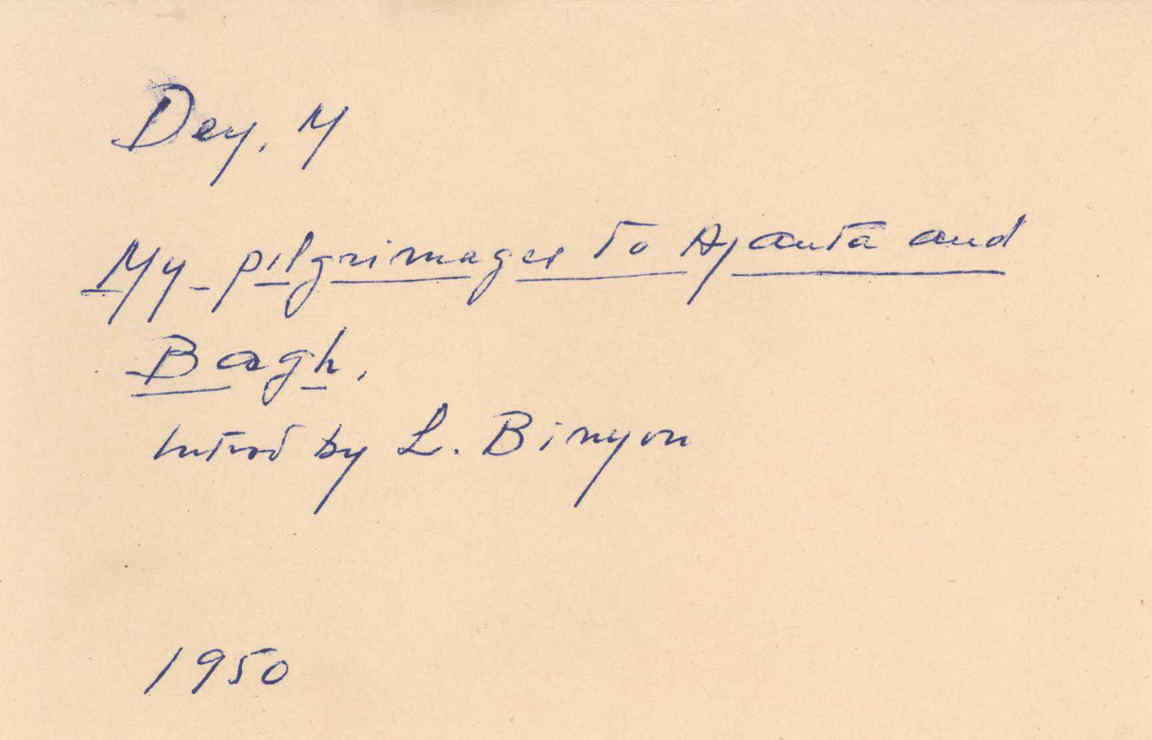 Dey, M
My pilgrimages to Ajanta and
Bagh,
Introd by L. Binyon
1950